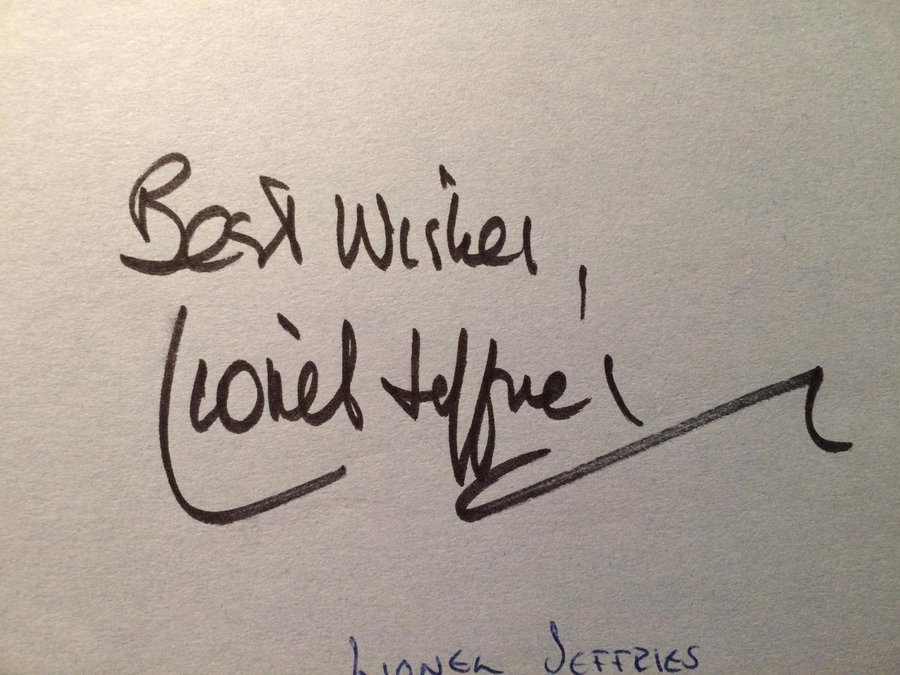 Best Wishes,
Lionel Jeffries
LIONEL JEFFRIES